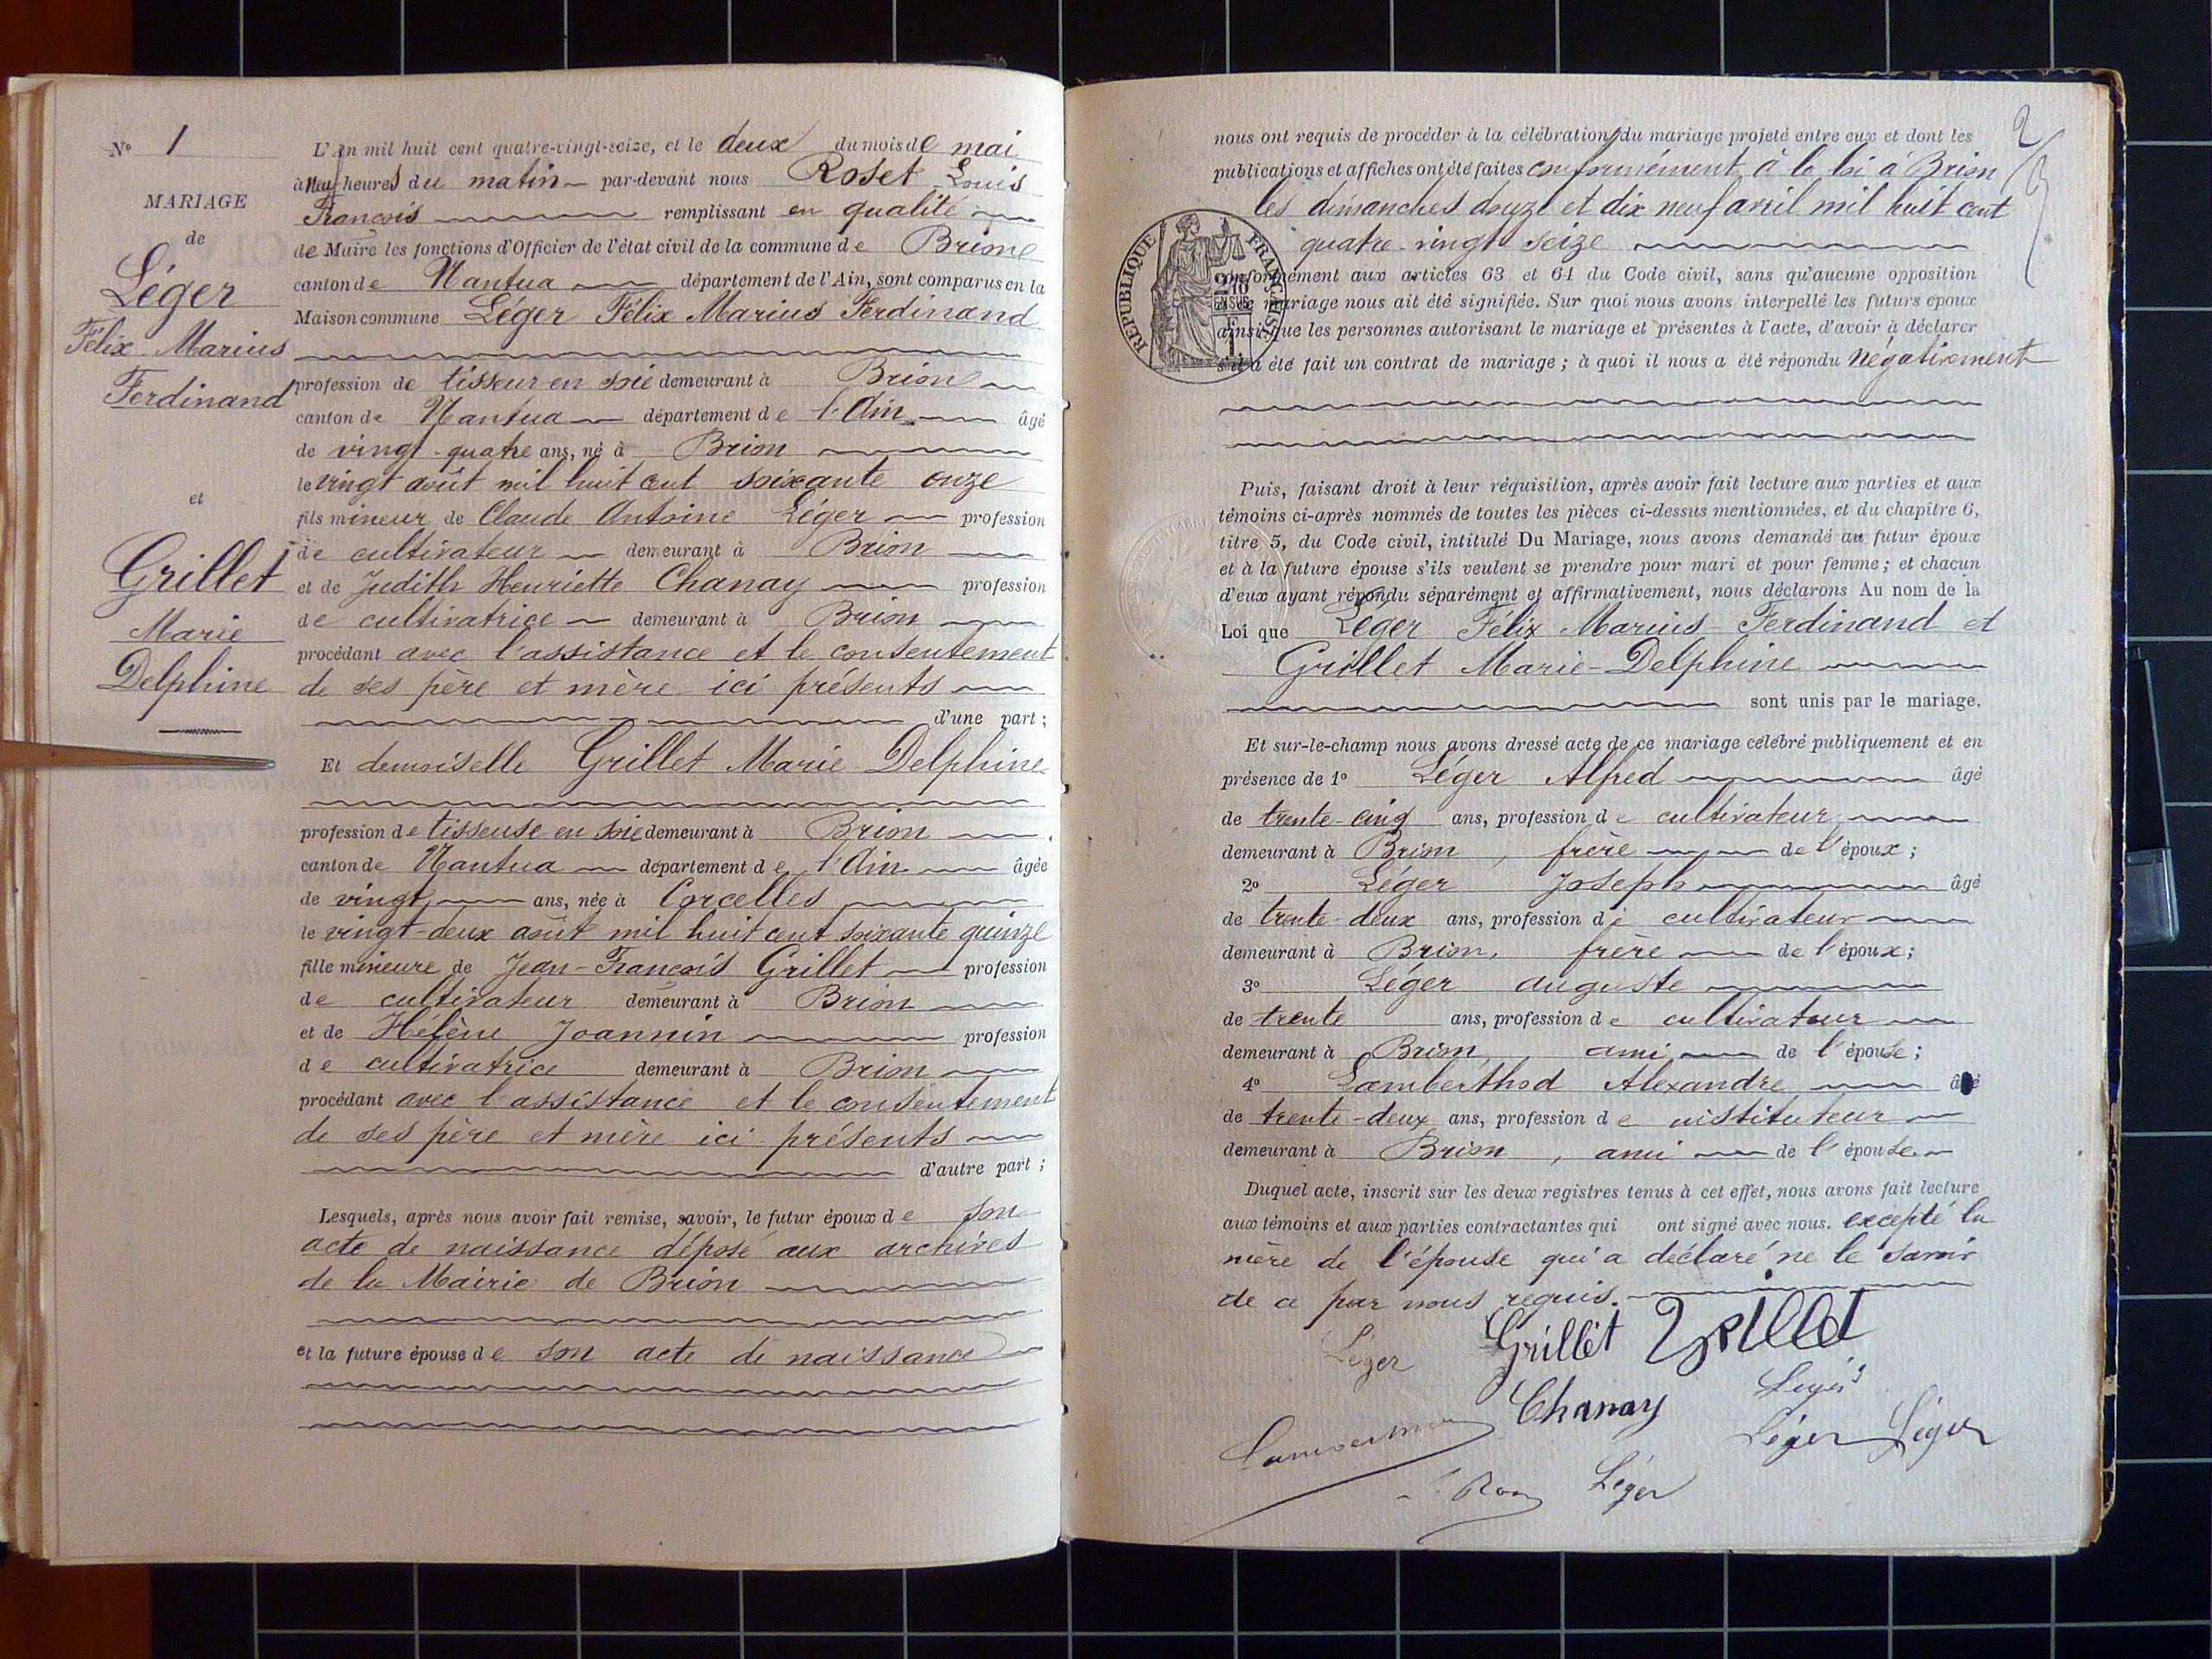 N° 1
MARIAGE
de
Léger
Félix Marius
Ferdinand
et
Grillet
Marie
Delphine
L'an mil huit cent quatre-vingt-seize, et le deux du mois de mai
à neuf heures du matin par-devant nous Roset Louis
François remplissant en qualité
de Maire les fonctions d'Officier de l'état civil de la commune de Brion
canton de Nantua département de l'Ain, sont comparus en la
Maison commune Léger Félix Marius Ferdinand
profession de tisseur en soie demeurant à Brion
canton de Nantua département de l'Ain âgé
de vingt-quatre ans, né à Brion
le vingt août mil huit cent soixante onze
fils mineur de Claude Antoine Léger profession
de cultivateur demeurant à Brion
et de Judith Henriette Chanay profession
de cultivatrice demeurant à Brion
procédant avec l'assistance et le consentement
de ses père et mère ici présents
d'une part ;
Et demoiselle Grillet Marie Delphine
profession de tisseuse en soie demeurant à Brion
canton de Nantua département de l'Ain âgée
de vingt ans, née à Corcelles
le vingt-deux août mil huit cent soixante quinze
fille mineure de Jean-François Grillet profession
de cultivateur demeurant à Brion
et de Hélène Joannin profession
de cultivatrice demeurant à Brion
procédant avec l'assistance et le consentement
de ses père et mère ici présents
d'autre part ;
Lesquels, après nous avoir fait remise, savoir, le futur époux de son
acte de naissance déposé aux archives
de la Mairie de Brion
et la future épouse de son acte de naissance
2
nous ont requis de procéder à la célébration du mariage projeté entre eux et dont les
publications et affiches ont été faites conformément à le loi à Brion
les dimanches douze et dix neuf avril mil huit cent
quatre-vingt seize
RÉPUBLIQUE FRANÇAISE
conformément aux articles 63 et 64 du Code civil, sans qu'aucune opposition
à ce mariage nous ait été signifiée. Sur quoi nous avons interpellé les futurs époux
ainsi que les personnes autorisant le mariage et présentes à l'acte, d'avoir à déclarer
s'il a été fait un contrat de mariage ; à quoi il nous a été répondu négativement
Puis, faisant droit à leur réquisition, après avoir fait lecture aux parties et aux
témoins ci-après nommés de toutes les pièces ci-dessus mentionnées, et du chapitre 6,
titre 5, du Code civil, intitulé Du Mariage, nous avons demandé au futur époux
et à la future épouse s'ils veulent se prendre pour mari et pour femme ; et chacun
d'eux ayant répondu séparément et affirmativement, nous déclarons Au nom de la
Loi que Léger Félix Marius Ferdinand et
Grillet Marie-Delphine
sont unis par le mariage.
Et sur-le-champ nous avons dressé acte de ce mariage célébré publiquement et en
présence de 1° Léger Alfred âgé
de trente-cinq ans, profession de cultivateur
demeurant à Brion, frère de l'époux ;
2° Léger Joseph âgé
de trente-deux ans, profession de cultivateur
demeurant à Brion, frère de l'époux ;
3° Léger auguste
de trente ans, profession de cultivateur
demeurant à Brion, ami de l'épouse ;
4° Lamberthod Alexandre âgé
de trente-deux ans, profession de instituteur
demeurant à Brion, ami de l'épouse
Duquel acte, inscrit sur les deux registres tenus à cet effet, nous avons fait lecture
aux témoins et aux parties contractantes qui ont signé avec nous. excepté la
mère de l'épouse qui a déclaré ne le savoir
de ce par nous requis.
Léger Grillet Grillet
Chanay Léger
Léger Léger
Léger